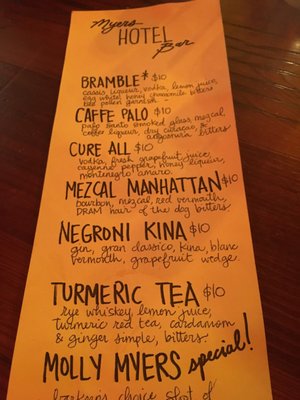 Myers
HOTEL
Bar
BRAMBLE* $10
cassis liqueur, vodka, lemon juice,
egg white, honey chamomile bitters
bee pollen garnish
CAFFE PALO $10
palo santo smoked glass, mezcal,
coffee liqueur, dry curacao &
angostura bitters
CURE ALL $10
vodka, fresh grapefruit juice,
cayenne pepper, honey liqueur,
montenegro amaro.
MEZCAL MANHATTAN $10
bourbon, mezcal, red vermouth,
DRAM hair of the dog bitters.
NEGRONI KINA $10
gin, gran classico, kina, blanc
vermouth, grapefruit wedge
TURMERIC TEA $10
rye whiskey, lemon juice,
turmeric red tea, cardamom
& ginger simple, bitters.
MOLLY MYERS special!
choice shot of